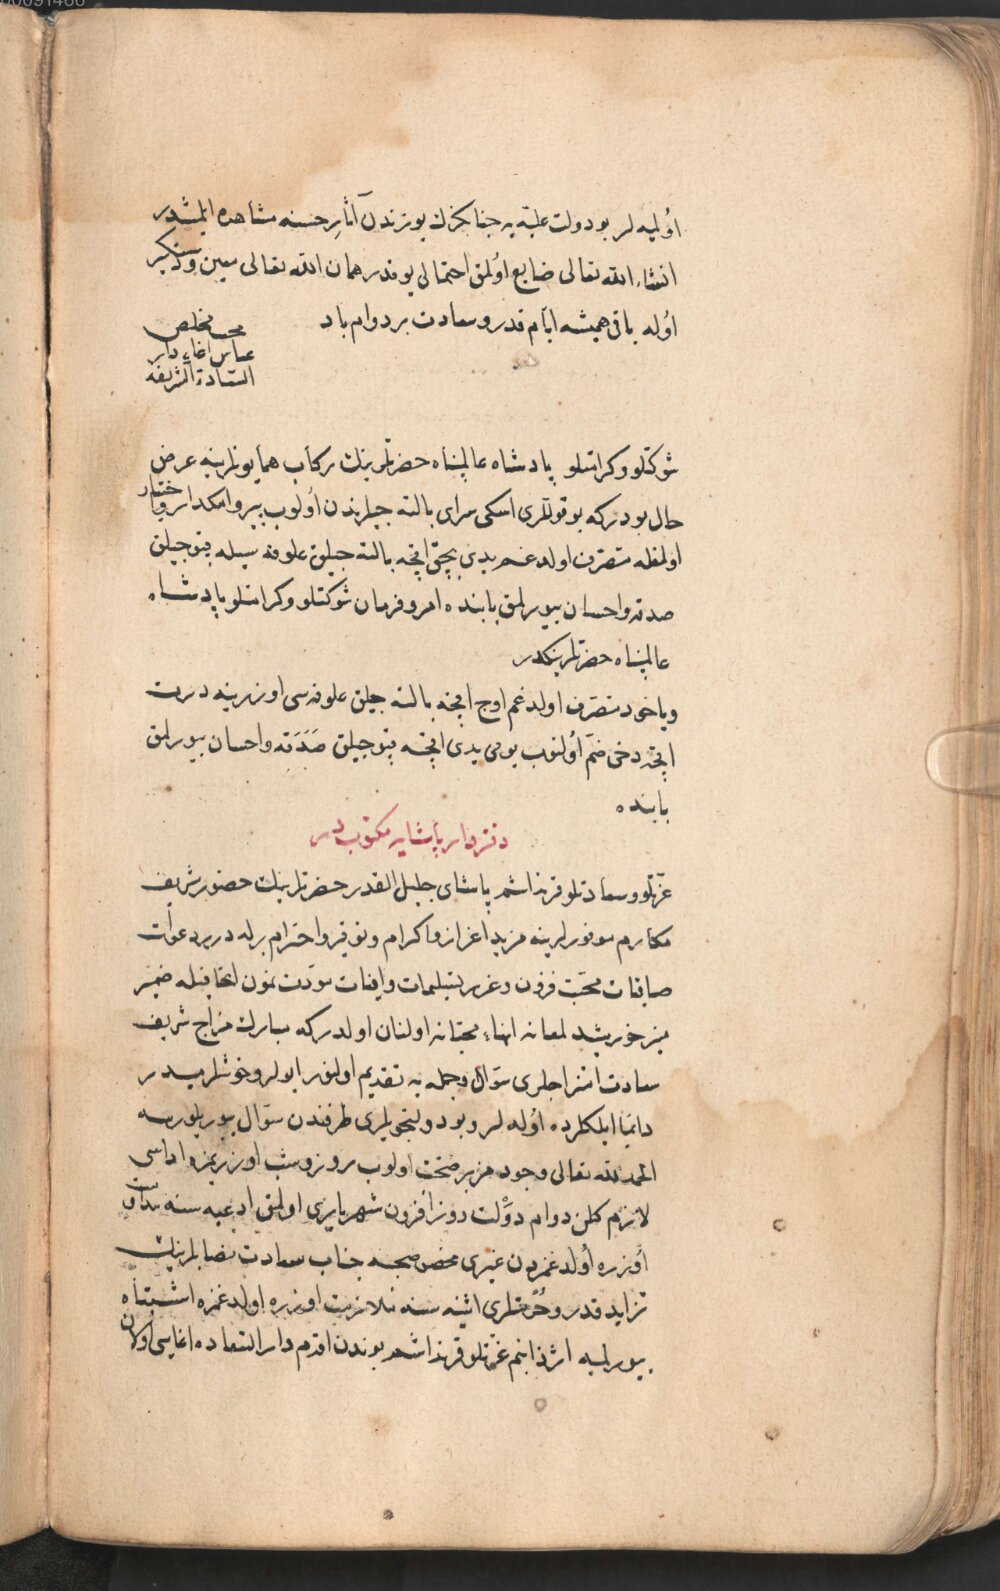 00091466
اوُلميه لر بو دولت عليّه يه جنابكزك يوزندن آثارِ حسنه مشاهده ايلمشدر
انشاء الله تعالى ضايع اوُلمق احتمالى يوقدر همان الله تعالى معين ودستكير
اوُله باقى هميشه ايّام قدر وسعادت بر دوام باد
محب مخلص
عباس اغاء دار
السّعادة الشّريفه
شوكتلو وكرامتلو پادشاه عالمپناه حضرتلرينك ركاب همايونلرينه عرض
حال بودركه بو قوللرى اسكى سراى بالته جيلرندن اوُلوب پير وامكدار واختيار
اولمغله متصرّف اولدغم يدى بچق اقچه بالته جيلق علوفه سيله قپوجيلق
صدقه واحسان بيورلمق بابنده امر وفرمان شوكتلو وكرامتلو پادشاه
عالمپناه حضرتلرينكدر
وياخود متصرّف اولدغم اوج اقچه بالته جيلق علوفه سى اوزرينه درت
اقچه دخى ضمّ اوُلنوب يومى يدى اقچه قپوجيلق صَدَقه واحسان بيورلمق
بابنده
دفتردار پاشايه مكتوبدر
عزّتلو وسعادتلو قرنداشم پاشاى جليل القدر حضرتلرينك حضور شريف
مكارم موفورلرينه مزيد اعزاز واكرام وتوقير واحترام برله درر دعوات
صافيات محبّت فزون وغرر تسليمات وافيات مودّت نمون اتحافيله ضمير
منير خورشيد لمعانه انهاء محبّانه اولنان اولدركه مبارك مزاج شريف
سعادت امتزاجلرى سؤال وجمله يه تقديم اولنور ايولر وخوشلرميدر
دايمًا ايلكلرده اوُله لر وبو دولتجويلرى طرفندن سؤال بيوريلورسه
الحمد لله تعالى وجودمز بر صحّت اولوب روز وشب اوزريمزه اداسى
لازم كلن دوام دَوْلت روز افزون شهريارى اولمق ادعيه سنه مداومت
اوُزره اوُلدغمزدن غيرى مخصوصجه جناب سعادت نصابلرينك
تزايد قدر وحُرمتلرى اثنيه سنه ملازمت اوزره اولدغمزه اشتباه
بيورلميه اثر ذاتم عزّتلو قرنداشم بوندن اقدم دار السّعاده اغاسى اوُلان